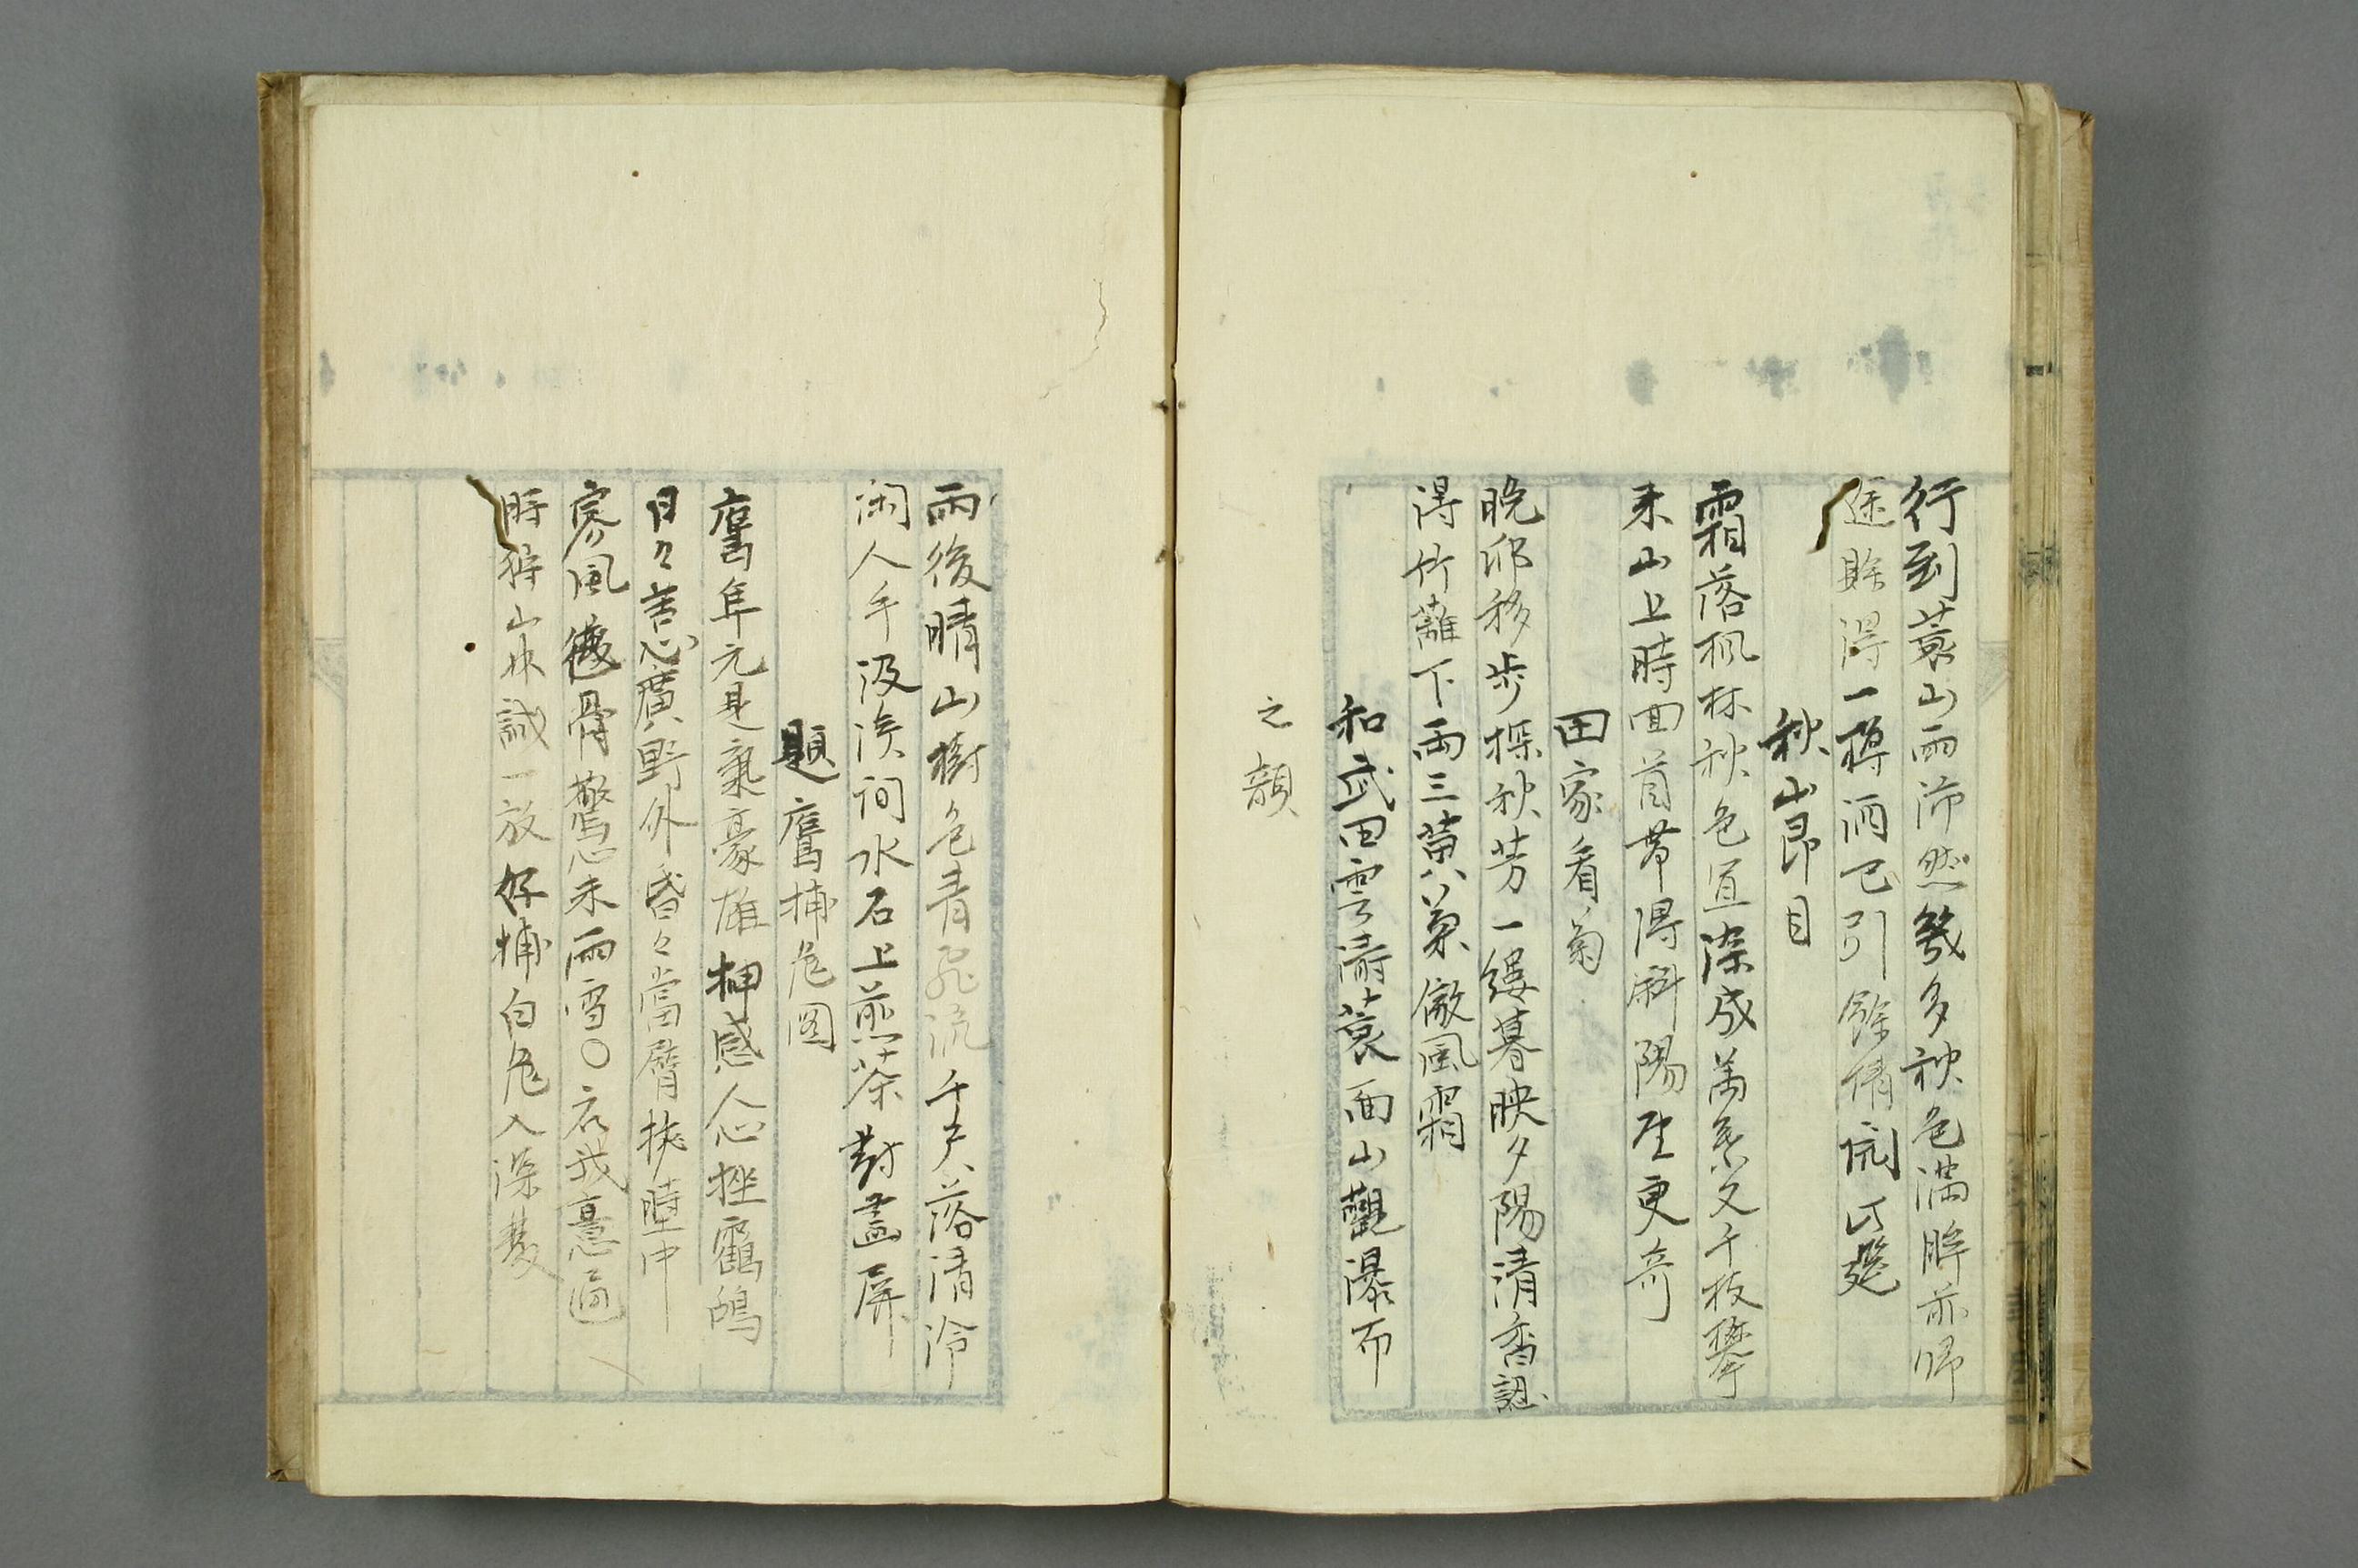 行到蓑山雨沛然幾多秋色満眸前帰
途賖得一樽酒已引餘情
秋山即目
霜落楓林秋色宜染成萬葉又千枝攀
来山上時回首帯得斜陽更奇
田家看菊
晩邨移歩探秋芳一縷暮映夕陽清香認
得竹籬下両三黄菊傲風霜
和武田雲濤蓑面山觀瀑布
之韻
雨後晴山樹色青飛流千尺落清冷
閑人手汲渓間水石上煎茶對畫屏
題鷹捕兎図
鷹隼元是稟豪雄神感人心挫鸖鴻
日々苦心廣野外昏々當臂挟陸中
寥風徹骨驚心未雨雪〇
時狩山林試一放好捕白兎入深叢